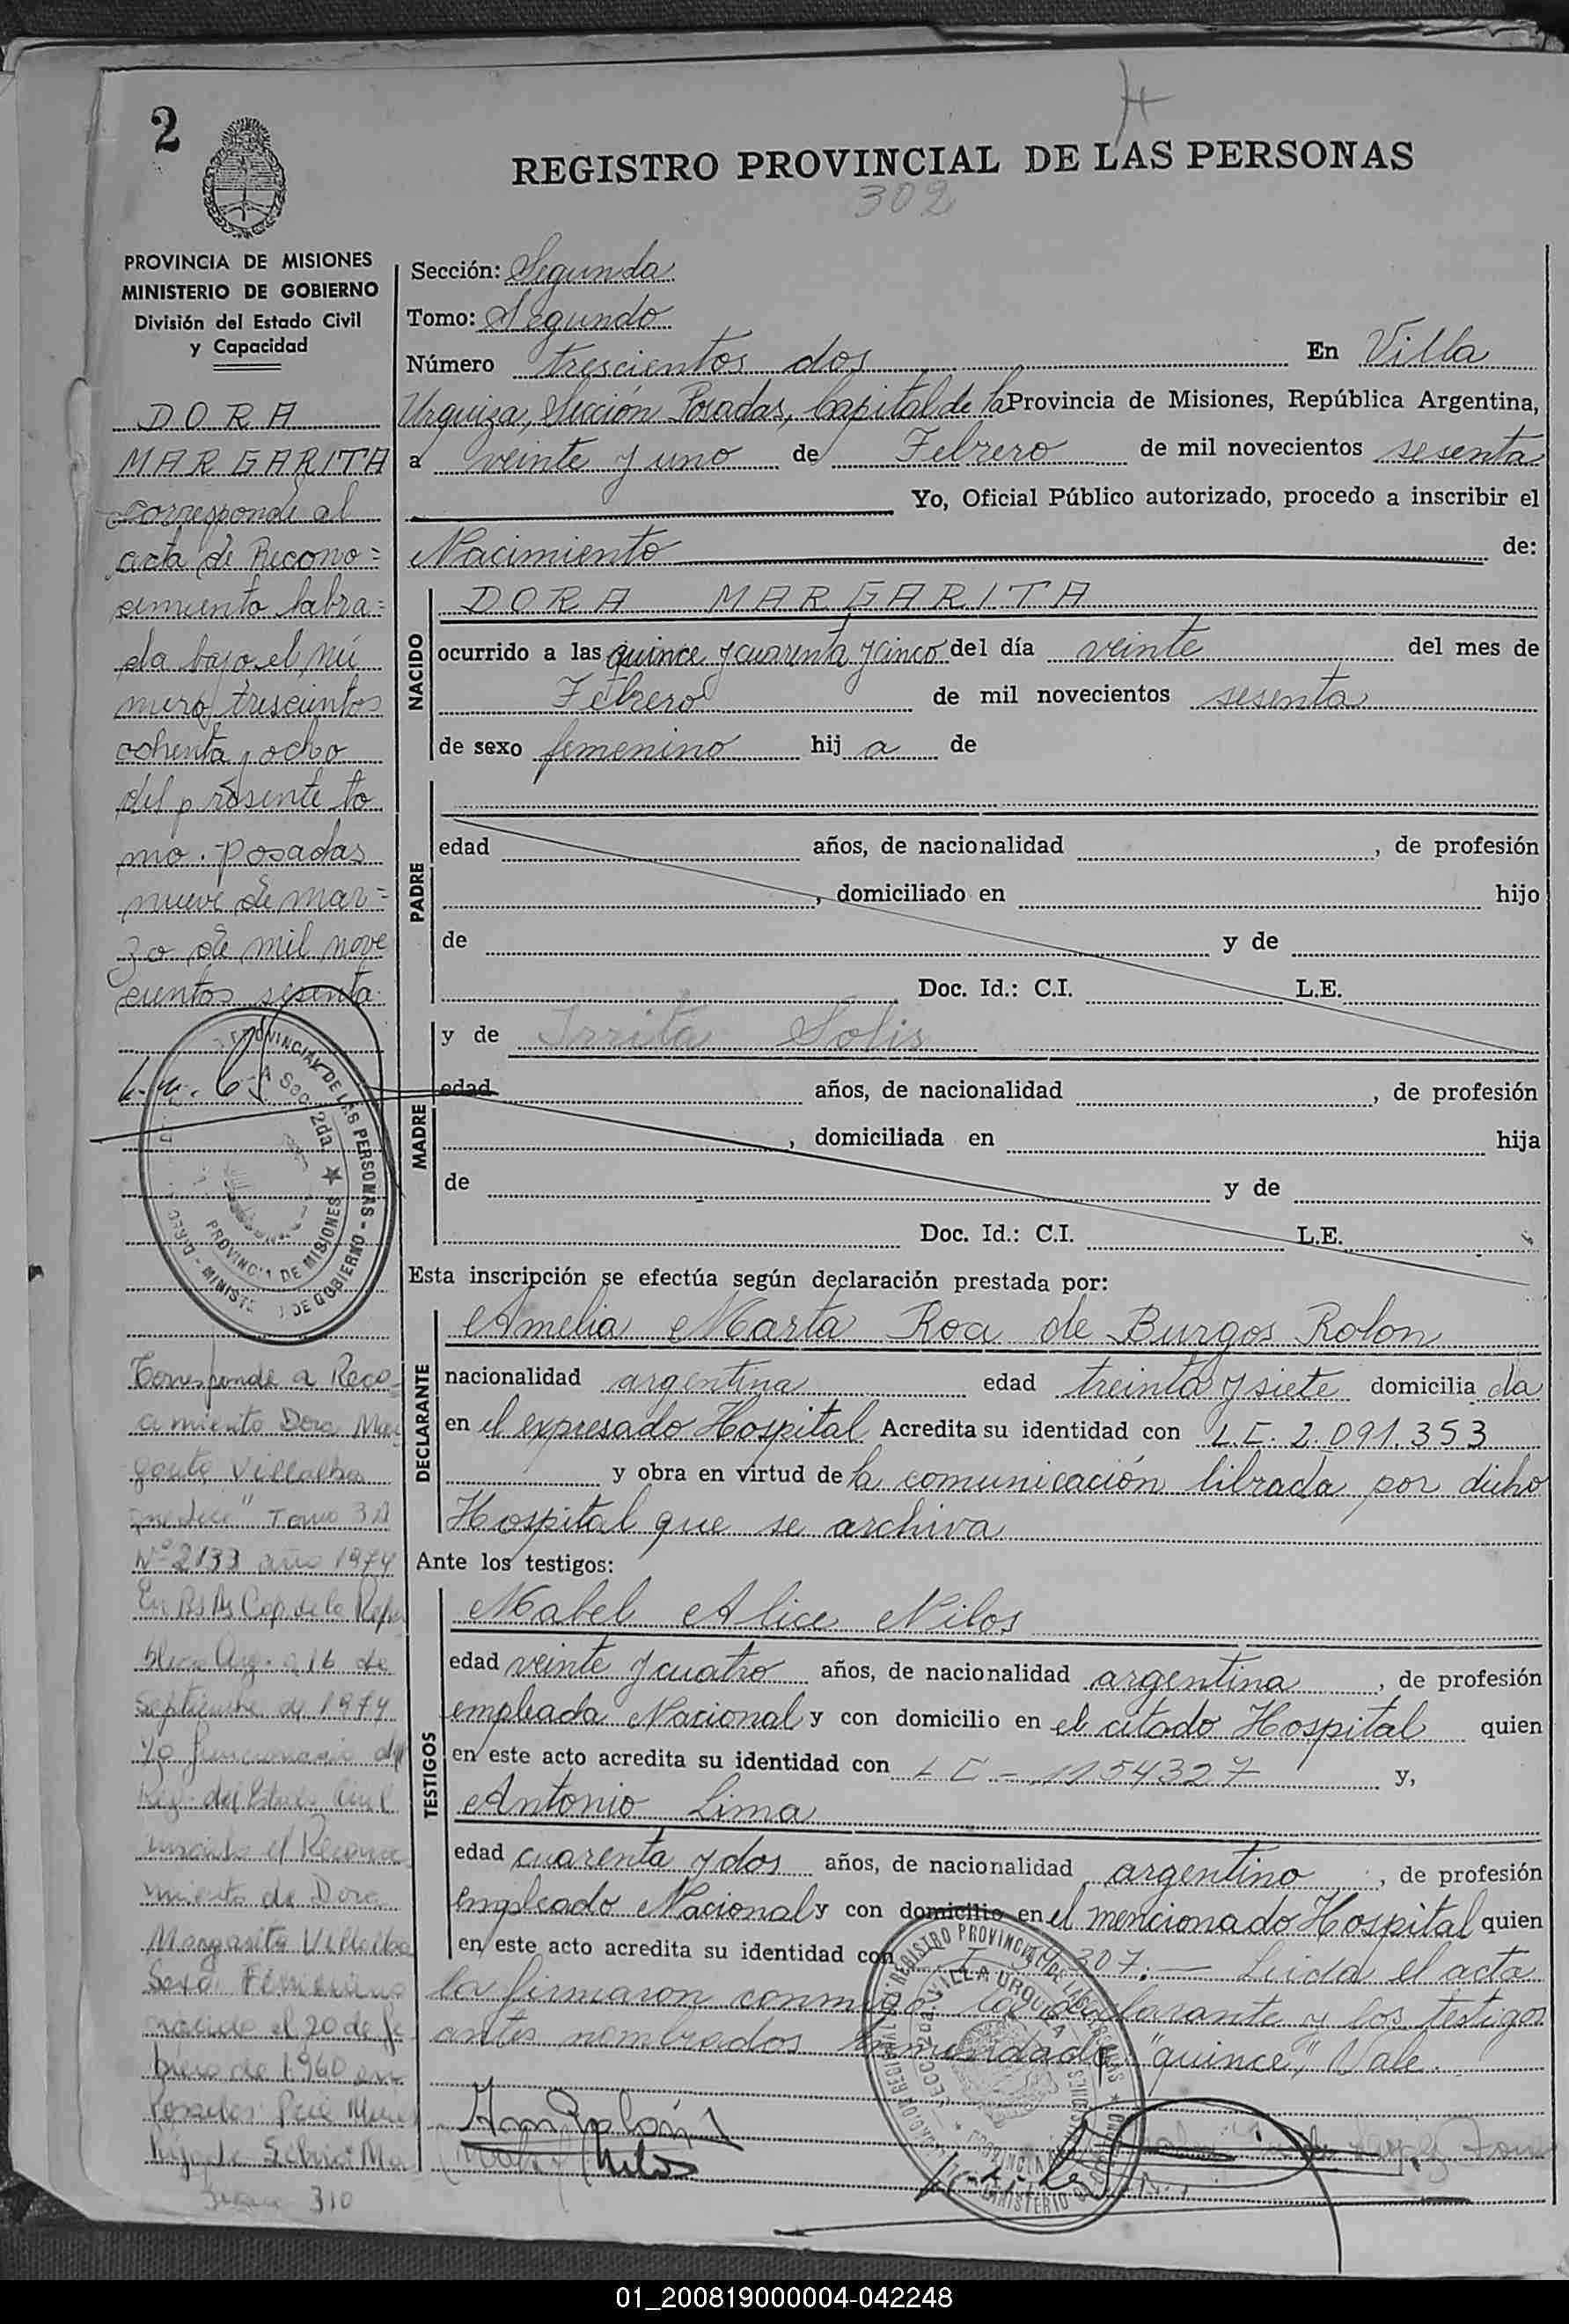 2
REGISTRO PROVINCIAL DE LAS PERSONAS
302
PROVINCIA DE MISIONES
MINISTERIO DE GOBIERNO
División del Estado Civil
y Capacidad
DORA
MARGARITA
corresponde al
acta de Recono=
cimiento labra=
da bajo el nú
mero trescientos
ochenta y ocho
del presente to
mo. Posadas
nueve de mar=
zo de mil nove
cientos sesenta
Corresponde a Reco
Dora Mar
Villalba
Tomo 3
Nº 2133 año 1974
En Bs As Cap. de la Repu
blica Arg. a 16 de
Septiembre de 1974
Yo funcionario del
Reg. del Estado Civil
el Reconoci
miento de Dora
Margarita Villalba
Sexo Femenino
nacido el 20 de fe
brero de 1960 en
Posadas
310
Sección: Segunda
Tomo: Segundo
Número trescientos dos En Villa
Urquiza, Sección Posadas, Capital de la Provincia de Misiones, República Argentina,
a veinte y uno de Febrero de mil novecientos sesenta
Yo, Oficial Público autorizado, procedo a inscribir el
Nacimiento de:
NACIDO
DORA MARGARITA
ocurrido a las quince y cuarenta y cinco del día veinte del mes de
Febrero de mil novecientos sesenta
de sexo femenino hij a de
PADRE
edad años, de nacionalidad , de profesión
, domiciliado en hijo
de y de
Doc. Id.: C.I. L.E.
MADRE
y de Irrita Solis
edad años, de nacionalidad , de profesión
, domiciliada en hija
de y de
Doc. Id.: C.I. L.E.
Esta inscripción se efectúa según declaración prestada por:
DECLARANTE
Amelia Marta Roa de Burgos Rolon
nacionalidad argentina edad treinta y siete domicilia da
en el expresado Hospital Acredita su identidad con L.C. 2.091.353
y obra en virtud de la comunicación librada por dicho
Hospital que se archiva
Ante los testigos:
TESTIGOS
Mabel Alice Nilos
edad veinte y cuatro años, de nacionalidad argentina , de profesión
empleada Nacional y con domicilio en el citado Hospital quien
en este acto acredita su identidad con LC - 1154327 y,
Antonio Lima
edad cuarenta y dos años, de nacionalidad argentino , de profesión
empleado Nacional y con domicilio en el mencionado Hospital quien
en este acto acredita su identidad con 307. — Leida el acta
la firmaron conmigo la declarante y los testigos
antes nombrados Enmendado "quince", Vale.
01_200819000004-042248